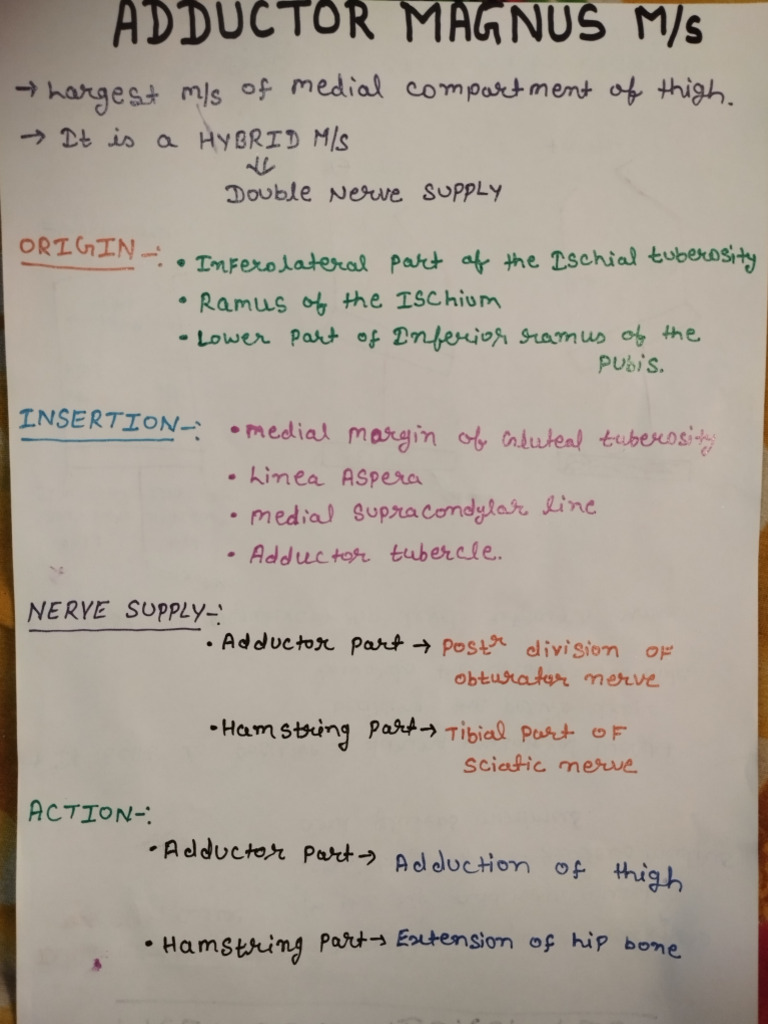 ADDUCTOR MAGNUS M/s
→ Largest m/s of medial compartment of thigh.
→ It is a HYBRID M/S
⇓
Double Nerve SUPPLY
ORIGIN -: • Inferolateral part of the Ischial tuberosity
• Ramus of the ISChium
• Lower part of Inferior ramus of the
Pubis.
INSERTION -: • medial margin of Gluteal tuberosity
• Linea Aspera
• medial supracondylar line
• Adductor tubercle.
NERVE SUPPLY -:
• Adductor part → Postr division of
obturator nerve
• Hamstring part → Tibial part of
sciatic nerve
ACTION -:
• Adductor part → Adduction of thigh
• Hamstring part → Extension of hip bone